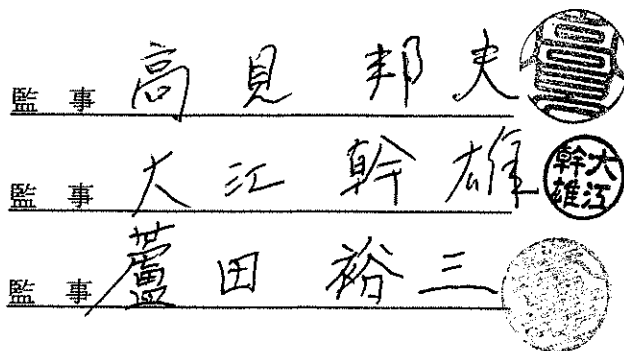 監事 高見邦夫
監事 大江幹雄 大江幹雄
監事 蘆田裕三